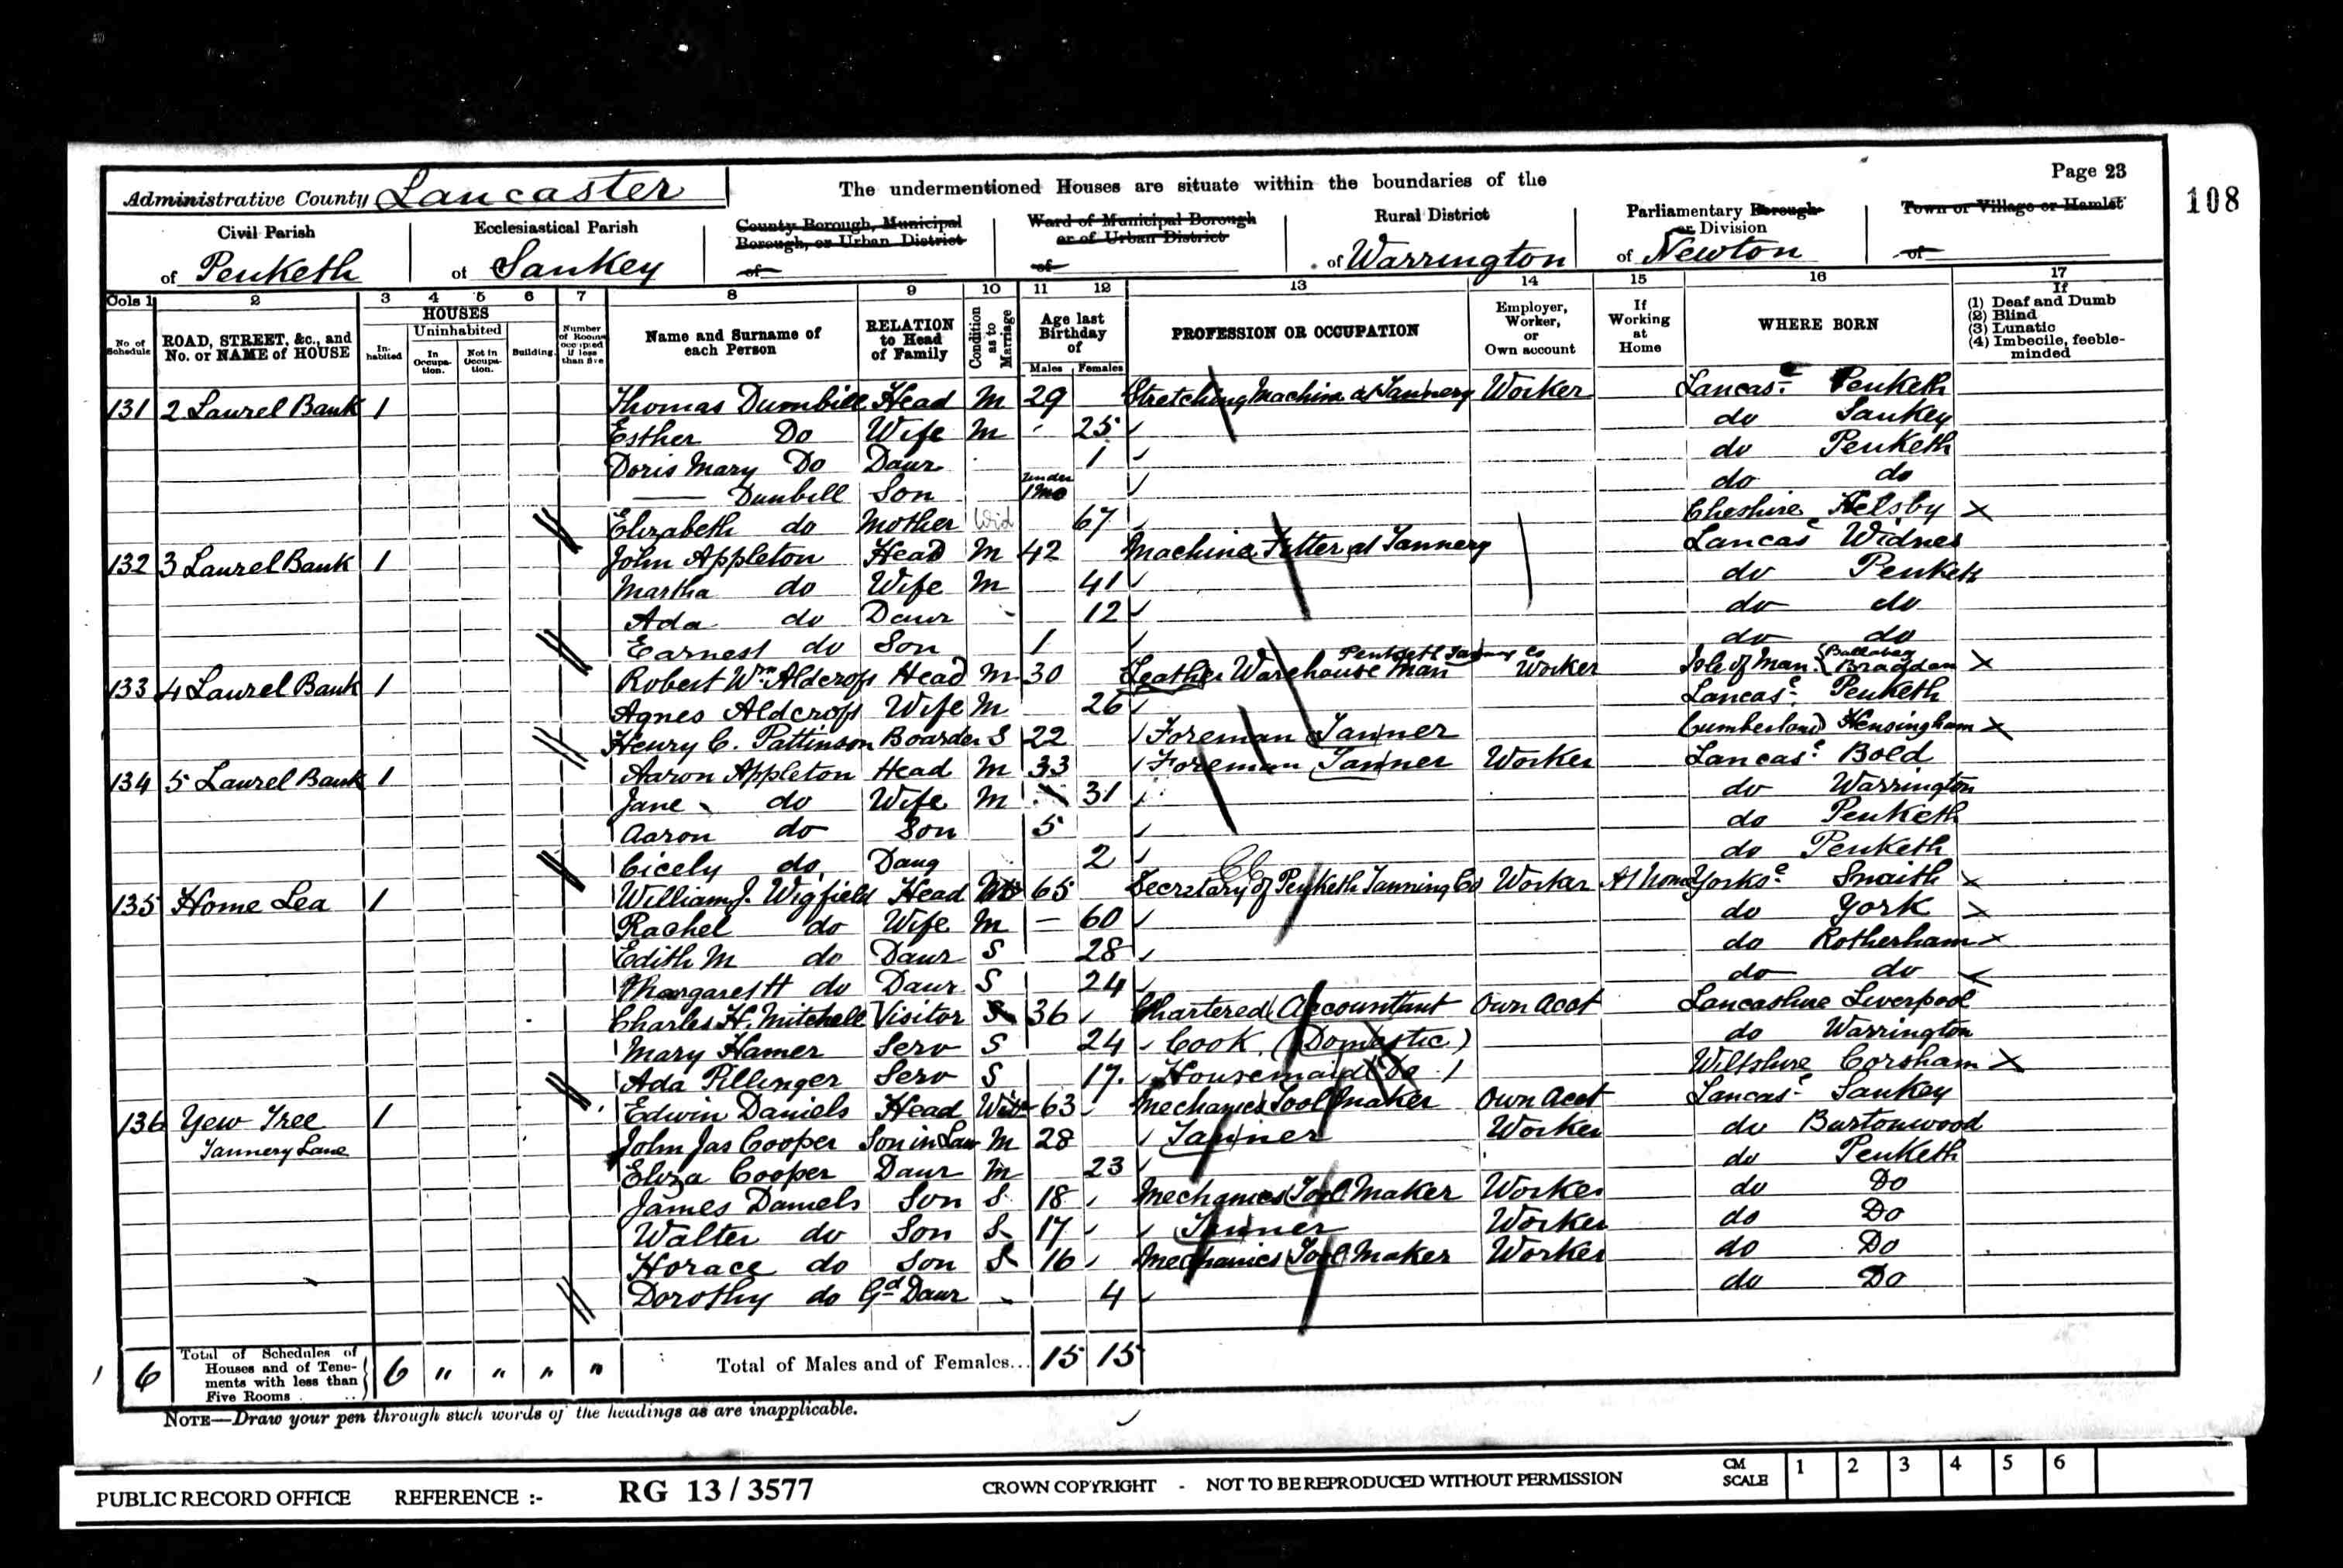 Page 23
108
Administrative County Lancaster
The undermentioned Houses are situate within the boundaries of the
Civil Parish of Penketh
Ecclesiastical Parish of Sankey
County Borough, Municipal Borough, or Urban District of
Ward of Municipal Borough or of Urban District of
Rural District of Warrington
Parliamentary Borough or Division of Newton
Town or Village or Hamlet of
Cols 1 2 3 4 5 6 7 8 9 10 11 12 13 14 15 16 17
No. of Schedule
ROAD, STREET, &c., and No. or NAME of HOUSE
HOUSES
Inhabited
Uninhabited
In Occupation.
Not in Occupation.
Building.
Number of Rooms occupied if less than five
Name and Surname of each Person
RELATION to Head of Family
Condition as to Marriage
Age last Birthday of
Males Females
PROFESSION OR OCCUPATION
Employer, Worker, or Own account
If Working at Home
WHERE BORN
If
(1) Deaf and Dumb
(2) Blind
(3) Lunatic
(4) Imbecile, feeble-minded
131 2 Laurel Bank 1 Thomas Dumbill Head M 29 Stretching Machine at Tannery Worker Lancas. Penketh
Esther Do Wife M 25 do Sankey
Doris Mary Do Daur 1 do Penketh
— Dunbill Son under 1 mo do do
Elizabeth do Mother Wid 67 Cheshire Helsby X
132 3 Laurel Bank 1 John Appleton Head M 42 Machine Fitter at Tannery Lancas Widnes
Martha do Wife M 41 do Penketh
Ada do Daur 12 do do
Earnest do Son 1 do do
133 4 Laurel Bank 1 Robert Wm Aldcroft Head M 30 Leather Warehouse Man Penketh Tanning Co Worker Isle of Man Braddan X
Agnes Aldcroft Wife M 26 Lancas. Penketh
Henry C. Pattinson Boarder S 22 Foreman Tanner Cumberland Hensingham X
134 5 Laurel Bank 1 Aaron Appleton Head M 33 Foreman Tanner Worker Lancas. Bold
Jane do Wife M 31 do Warrington
Aaron do Son 5 do Penketh
Cicely do Daug 2 do Penketh
135 Home Lea 1 William J. Wigfield Head 65 Secretary of Penketh Tanning Co Worker At Home Yorks. Snaith X
Rachel do Wife M — 60 do York X
Edith M do Daur S 28 do Rotherham X
Margaret H do Daur S 24 do do X
Charles H. Mitchell Visitor S 36 Chartered Accountant Own Acct Lancashire Liverpool
Mary Hamer Serv S 24 Cook (Domestic) do Warrington
Ada Pillinger Serv S 17 Housemaid (Do) Wiltshire Corsham X
136 Yew Tree 1 Edwin Daniels Head Wid 63 Mechanics Tool Maker Own Acct Lancas. Sankey
Tannery Lane John Jas Cooper Son in Law M 28 Tanner Worker do Burtonwood
Eliza Cooper Daur M 23 do Penketh
James Daniels Son S 18 Mechanics Tool Maker Worker do Do
Walter do Son S 17 Tanner Worker do Do
Horace do Son S 16 Mechanics Tool Maker Worker do Do
Dorothy do Gd Daur 4 do Do
6 Total of Schedules of Houses and of Tenements with less than Five Rooms .. 6 " " " " Total of Males and of Females... 15 15
NOTE—Draw your pen through such words of the headings as are inapplicable.
PUBLIC RECORD OFFICE REFERENCE :- RG 13 / 3577 CROWN COPYRIGHT - NOT TO BE REPRODUCED WITHOUT PERMISSION CM SCALE 1 2 3 4 5 6